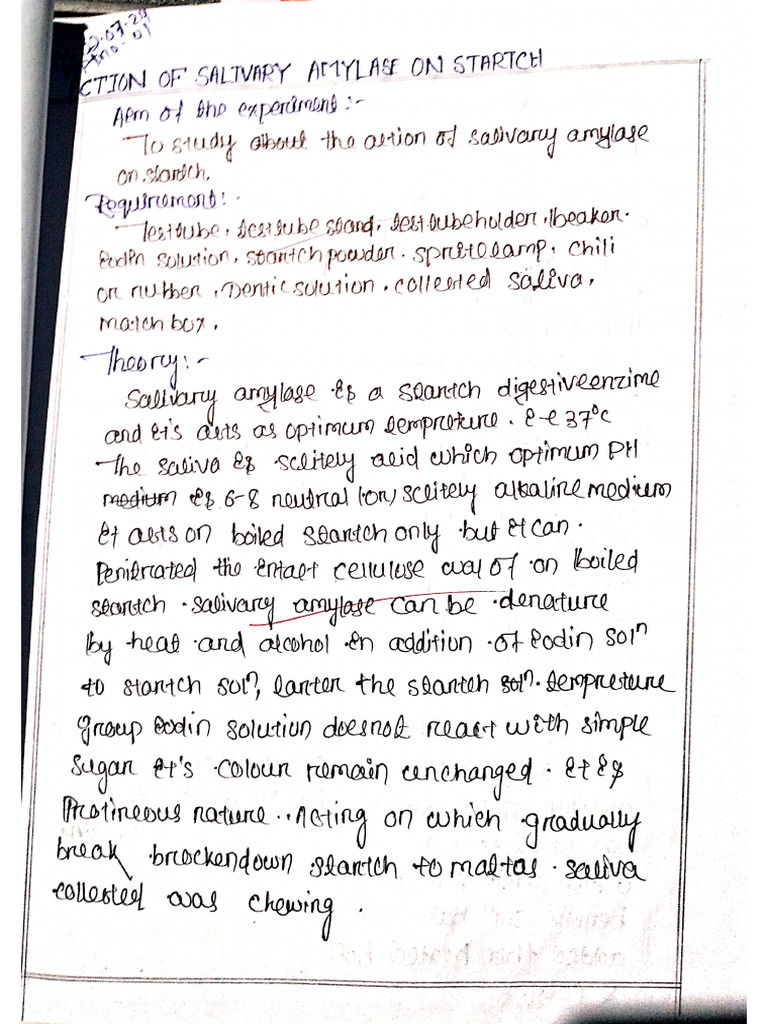 2.07.24
no:-01
CTION OF SALIVARY AMYLASE ON STARTCH
Aim of the experiment:-
To study about the action of salivary amylase
on startch.
Requirement:-
Testtube, testtube stand, testtubeholder, beaker.
Iodin solution, startch powder. spritelamp, chili
or rubber, Dentic solution. collected saliva,
match box.
Theory:-
Salivary amylase is a startch digestiveenzime
and it's acts as optimum tempreture. i-e 37°c
The saliva is sclitely acid which optimum PH
medium is 6-8 neutral (or) sclitely alkaline medium
it acts on boiled startch only but it can.
Penitrated the intact cellulose wal of on boiled
startch. salivary amylase can be denature
by heat and alcohol in addition of iodin solⁿ
to startch solⁿ, the startch solⁿ. tempreture
group iodin solution doesnot react with simple
sugar it's colour remain unchanged. it is
Protineous nature. Acting on which gradually
break brockendown startch to maltas. saliva
collected was chewing.